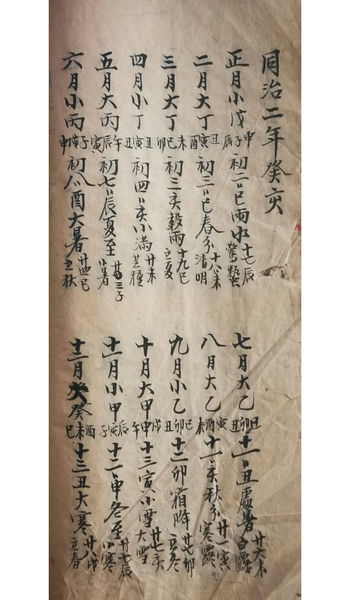 同治二年癸亥
正月小戊申子辰 初二巳雨水 十七辰驚蟄
二月大丁丑酉寅 初三巳春分 十八未清明
三月大丁未卯巳 初三亥穀雨 十九巳立夏
四月小丁丑寅 初四亥小滿 廿未芒種
五月大丙午辰寅 初七辰夏至 廿三子小暑
六月小丙子戌申 初八酉大暑 廿四巳立秋
七月大乙巳丑 十一丑處暑 廿六未白露
八月大乙亥未寅 十一亥秋分 廿六寅寒露
九月小乙巳卯丑 十二卯霜降 廿七卯立冬
十月大甲戌午 十三寅小雪 廿七亥大雪
十一月小甲辰寅子 十二申冬至 廿七辰小寒
十二月大癸酉未巳 十三丑大寒 廿八戌立春